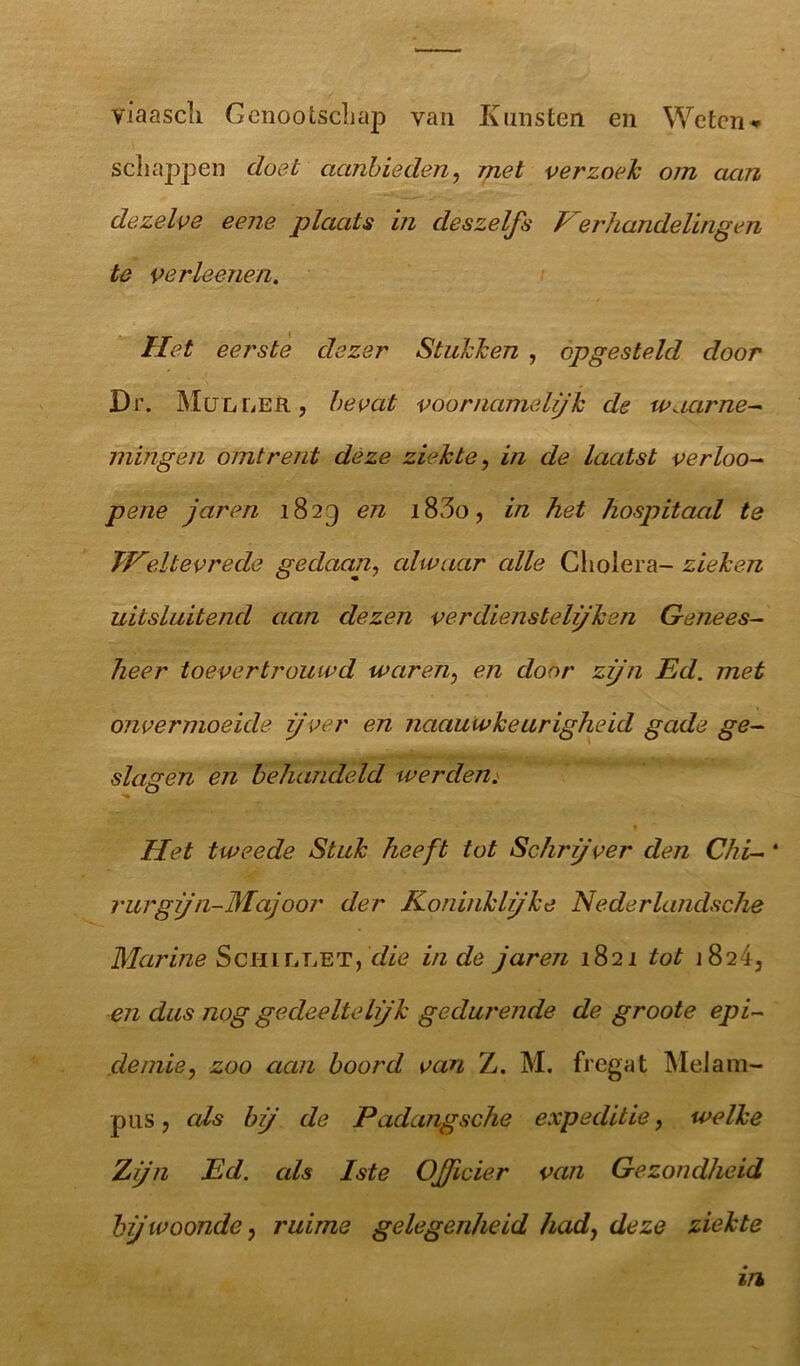 viaasch Genootschap van Kunsten en Weten-
schappen doet aanbieden, met verzoek om aan
dezelve eene plaats in deszelfs Verhandelingen
te verleenen.
Het eerste dezer Stukken, opgesteld door
Dr. MULLER, bevat voornamelijk de waarne-
mingen omtrent deze ziekte, in de laatst verloo-
pene jaren 1829 en 1830, in het hospitaal te
Weltevrede gedaan, alwaar alle Cholera- zieken
uitsluitend aan dezen verdienstelijken Genees-
heer toevertrouwd waren, en door zijn Ed. met
onvermoeide ijver en naauwkeurigheid gade ge-
slagen en behandeld werden.
Het tweede Stuk heeft tot Schrijver den Chi-
rurgijn-Majoor der Koninklijke Nederlandsche
Marine SCHILLET, die in de jaren 1821 tot 1824,
en dus nog gedeeltelijk gedurende de groote epi-
demie, zoo aan boord van Z. M. fregat Melam-
pus, als bij de Padangsche expeditie, welke
Zijn Ed. als Iste Officier van Gezondheid
bijwoonde, ruime gelegenheid had, deze ziekte
in